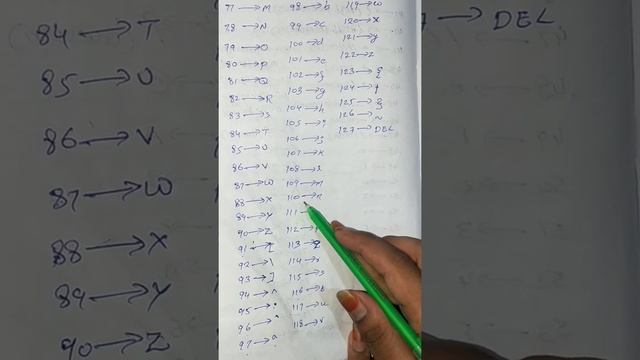 77 → M
78 → N
79 → O
80 → P
81 → Q
82 → R
83 → S
84 → T
85 → U
86 → V
87 → W
88 → X
89 → Y
90 → Z
91 → [
92 → \
93 → ]
94 → ^
95 →
96 → `
97 → a
98 → b
99 → c
100 → d
101 → e
102 → f
103 → g
104 → h
105 → i
106 → j
107 → k
108 → l
109 → m
110 → n
111 →
112 →
113 → q
114 → r
115 → s
116 → t
117 → u
118 → v
119 → w
120 → x
121 → y
122 → z
123 → {
124 → |
125 → }
126 → ~
127 → DEL
84 → T
85 → U
86 → V
87 → W
88 → X
89 → Y
90 → Z
7 → DEL